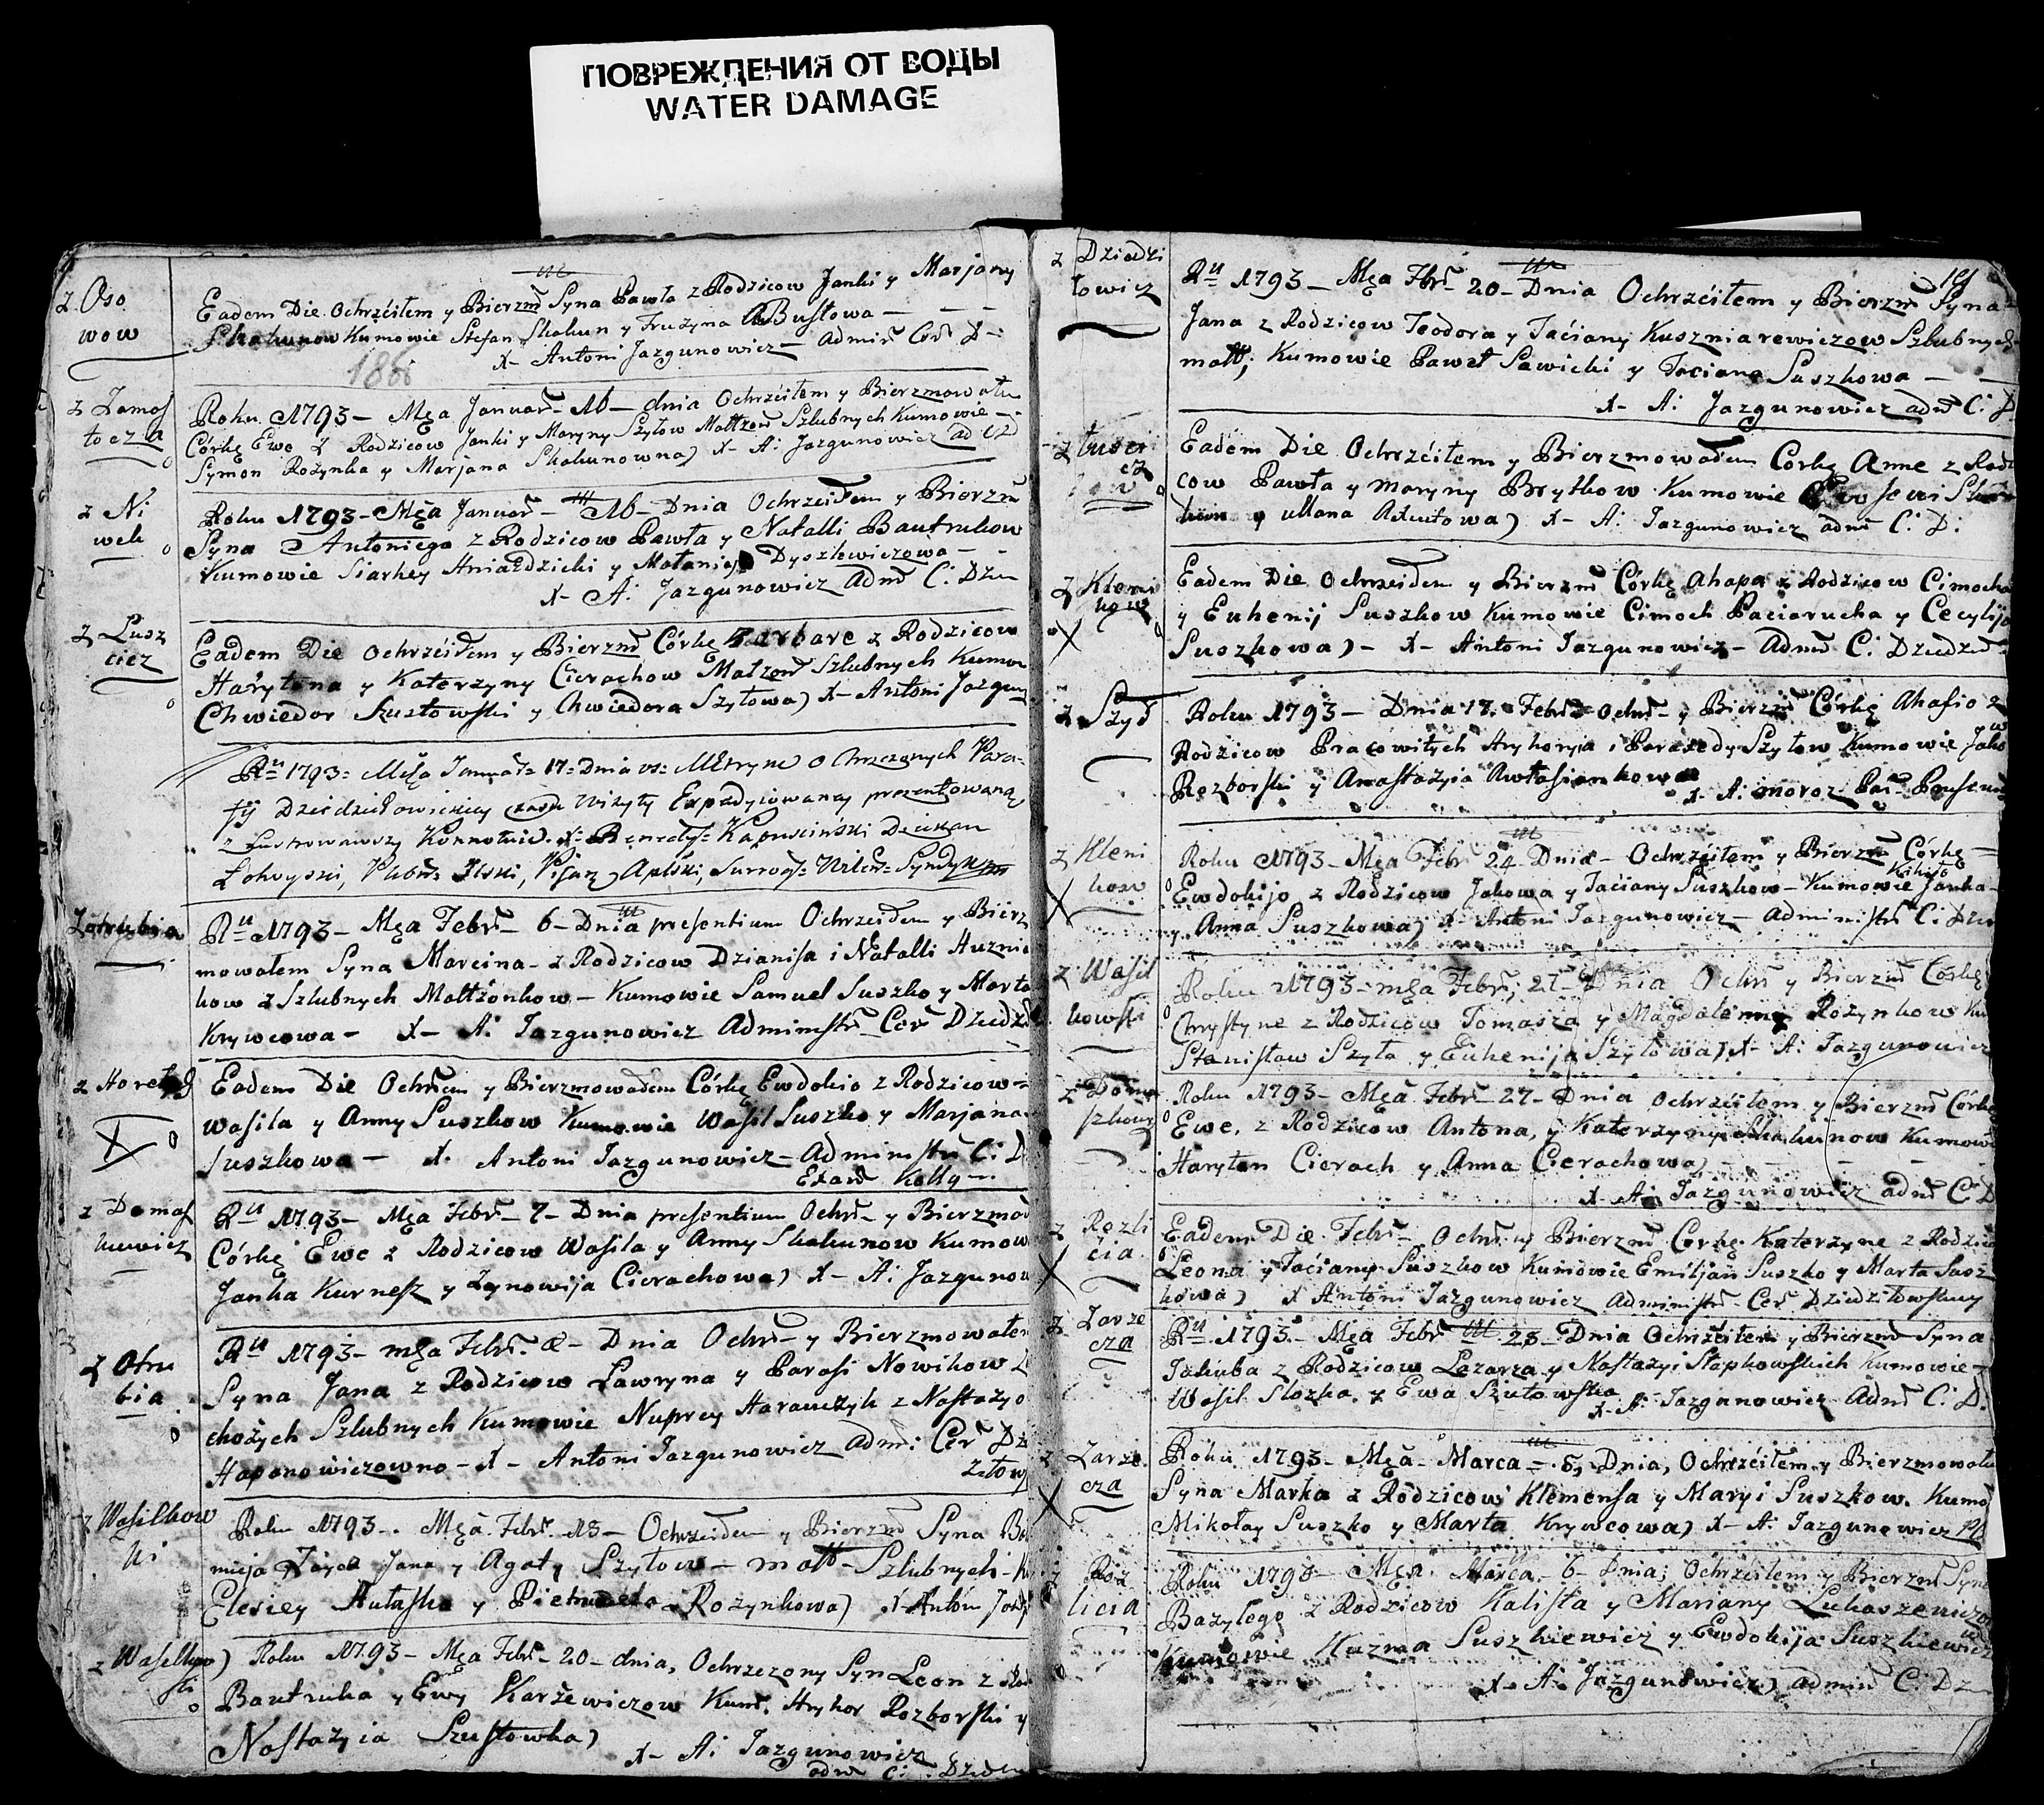 ПОВРЕЖДЕНИЯ ОТ ВОДЫ
WATER DAMAGE
z Oso
wow
Eadem Die Ochrzćiłem y Bierzm Syna Pawła z Rodzicow Janki y Marjany
Skakunow Kumowie Stefan Skakun y Fruzyna Bustowa —
X- Antoni Jazgunowicz — Admin Cer D
186
z Zamos
tocza
Roku 1793 — Mca Januar — 16 — dnia Ochrzćiłem y Bierzmowałem
Corkę Ewe z Rodzicow Janki y Maryny Szyłow Małżon Szlubnych Kumowie —
Symon Rozynka y Marjana Skakunowna) X- A: Jazgunowicz ad C D
z Ni
wek
Roku 1793 — Mca Januar — 16 — Dnia Ochrzćiłem y Bierzm
Syna Antoniego z Rodzicow Pawła y Natalli Bautrukow
Kumowie Siarhey Hniazdzicki y Małanija Dyszlewiczowa —
X- A: Jazgunowicz Adm C: Dzie
z Lusz
cicz
Eadem Die Ochrzćiłem y Bierzm Córkę Barbare z Rodzicow
Harytona y Katerzyny Cierachow Malzon Szlubnych Kumow
Chwiedor Szustowski y Chwiedora Szyłowa) X- Antoni Jazgun
Ru 1793 = Msca Januar = 17 = Dnia Metryne o Chrzczonych Para-
fij Dziedziłowickiey czasu Wizyty Expedyiowaney prezentowaną
z Lustrowawszy X: Benedyk: Kapusciński Dziekan
Łohoyski, Pisarz Surrog: Wilen: Syndyk
Zatrubia
Ru 1793 — Mca Febr — 6 — Dnia presentium Ochrzćiłem y Bierz
mowałem Syna Marcina — z Rodzicow Dzianisa i Natalli Huznia
kow z Szlubnych Małżonkow — Kumowie Samuel Suszko y Marta
Krywcowa — X- A: Jazgunowicz Administr Cer Dziedzi
z Horeły
Eadem Die Ochrem y Bierzmowałem Córkę Ewdokio z Rodzicow —
Wasila y Anny Suszkow Kumowie Wasil Suszko y Marjana
Suszkowa — X. Antoni Jazgunowicz — Administr C: D
z Domas
kiewicz
Ru 1793 — Mca Febr — 7 — Dnia presentium Ochr — y Bierzmow
Córkę Ewe z Rodzicow Wasila y Anny Skakunow Kumow
Janka Kurnesz y Zynowija Cierachowa) X- A: Jazgunow
z Otru
bia
Ru 1793 — mca Febr — 8 — Dnia Ochr — y Bierzmowałem
Syna Jana z Rodzicow Ławryna y Parasi Nowikow
chożych Szlubnych Kumowie Nuprey Haranczyk z Nastazyo
Haponowiczowno — X — Antoni Jazgunowicz Adm: Cer Dz
z Wasilkow
ki
Roku 1793 — Mca Febr. 18 — Ochrzćiłem y Bierzm Syna
Jana y Agaty Szyłow — małł — Szlubnych —
Elesiey Autasko y Pietrunela Rozynkowa) X Antoni
z Wasilkow
ski
Roku 1793 — Mca Febr — 20 — dnia, Ochrzczony Syn Leon z
Bautruka y Ewy Karżewiczow Kum. Hryhor Rozborski y
Nastazyia Szustowka)
X- A: Jazgunowicz
adm C: Dziedz
z Dziedzi
łowicz
Ru 1793 — Mca Febr — 20 — Dnia Ochrzćiłem y Bierzm Syna
Jana z Rodzicow Teodora y Taćiany Kuszniarewiczow Szlubnych
małł; Kumowie Paweł Sawicki y Taciana Suszkowa —
X- A: Jazgunowicz adm C: D
z Łusci
cz
Eadem Die Ochrzćiłem y Bierzmowałem Corkę Anne z Rodzi
cow Pawła y Maryny Brytkow Kumowie
y Ullana Axiutowa) X- A: Jazgunowicz adm C: D:
z Kleni
kow
Eadem Die Ochrzćiłem y Bierzm Córkę Ahapa z Rodzicow Cimocha
y Euhenij Suszkow Kumowie Cimoch Paciarucha y Cecylija
Suszkowa) — X- Antoni Jazgunowicz — Adm C: Dziedził
z Szył
Roku 1793 — Dnia 17. Febr Ochr — y Bierzm Córkę Ahafio z
Rodzicow Pracowitych Hryhorya i Paraxedy Szyłow Kumowie Jakow
Rozborski y Anastazyia Awłasionkowa
X- A: Moroz Par
z Kleni
kow
Roku 1793 — Mca Febr 24 Dnia — Ochrzćiłem y Bierzm Córkę —
Ewdokijo z Rodzicow Jakowa y Taćiany Suszkow — Kumowie Janka
y Anna Suszkowa) X Antoni Jazgunowicz — Administr C: Dzie
z Wasil
kowski
Roku 1793 — mca Febr; 27 — Dnia Ochr y Bierzm Córkę
Chrystyne z Rodzicow Tomasza y Magdaleny Rozynkow Ku
Stanisław Szyła y Euhenija Szyłowa) X- A: Jazgunowicz
z Doma
szkow
Roku 1793 — Mca Febr — 27 — Dnia Ochrzćiłem y Bierzm Córkę
Ewe, z Rodzicow Antona, y Katerzyny Skakunow Kumow
Haryton Cierach y Anna Cierachowa)
X- A: Jazgunowicz adm C: D
z Rozli
cia
Eadem Die Febr — Ochr y Bierzm Corkę Katerzyne z Rodzic
Leona y Taćiany Suszkow Kumowie Emilijan Suszko y Marta Susz
kowa) X Antoni Jazgunowicz Administr Cer Dziedziłowskiey
z Zarze
cza
Ru 1793 — Mca Febr 28 — Dnia Ochrzćiłem y Bierzm Syna
Jakuba z Rodzicow Łazarza y Nastazyi Słapkowskich Kumowie —
Wasil Slozka y Ewa Szutowska
X- A: Jazgunowicz Adm C: D:
z Zarze
cza
Roku 1793 — Mca — Marca — 5, Dnia, Ochrzćiłem y Bierzmowałe
Syna Marka z Rodzicow Klemensa y Maryi Suszkow. Kumo
Mikołay Suszko y Marta Krywcowa) X- A: Jazgunowicz
z Roz
licia
Roku 1793 — Mca Marca — 6 — Dnia; Ochrzćiłem y Bierzm Syna
Bazylego z Rodzicow Kalista y Mariany Łukaszewiczow
Kumowie Kuzma Suszkiewicz y Ewdokija Suszkiewicz
X- A: Jazgunowicz) admin C: Dz